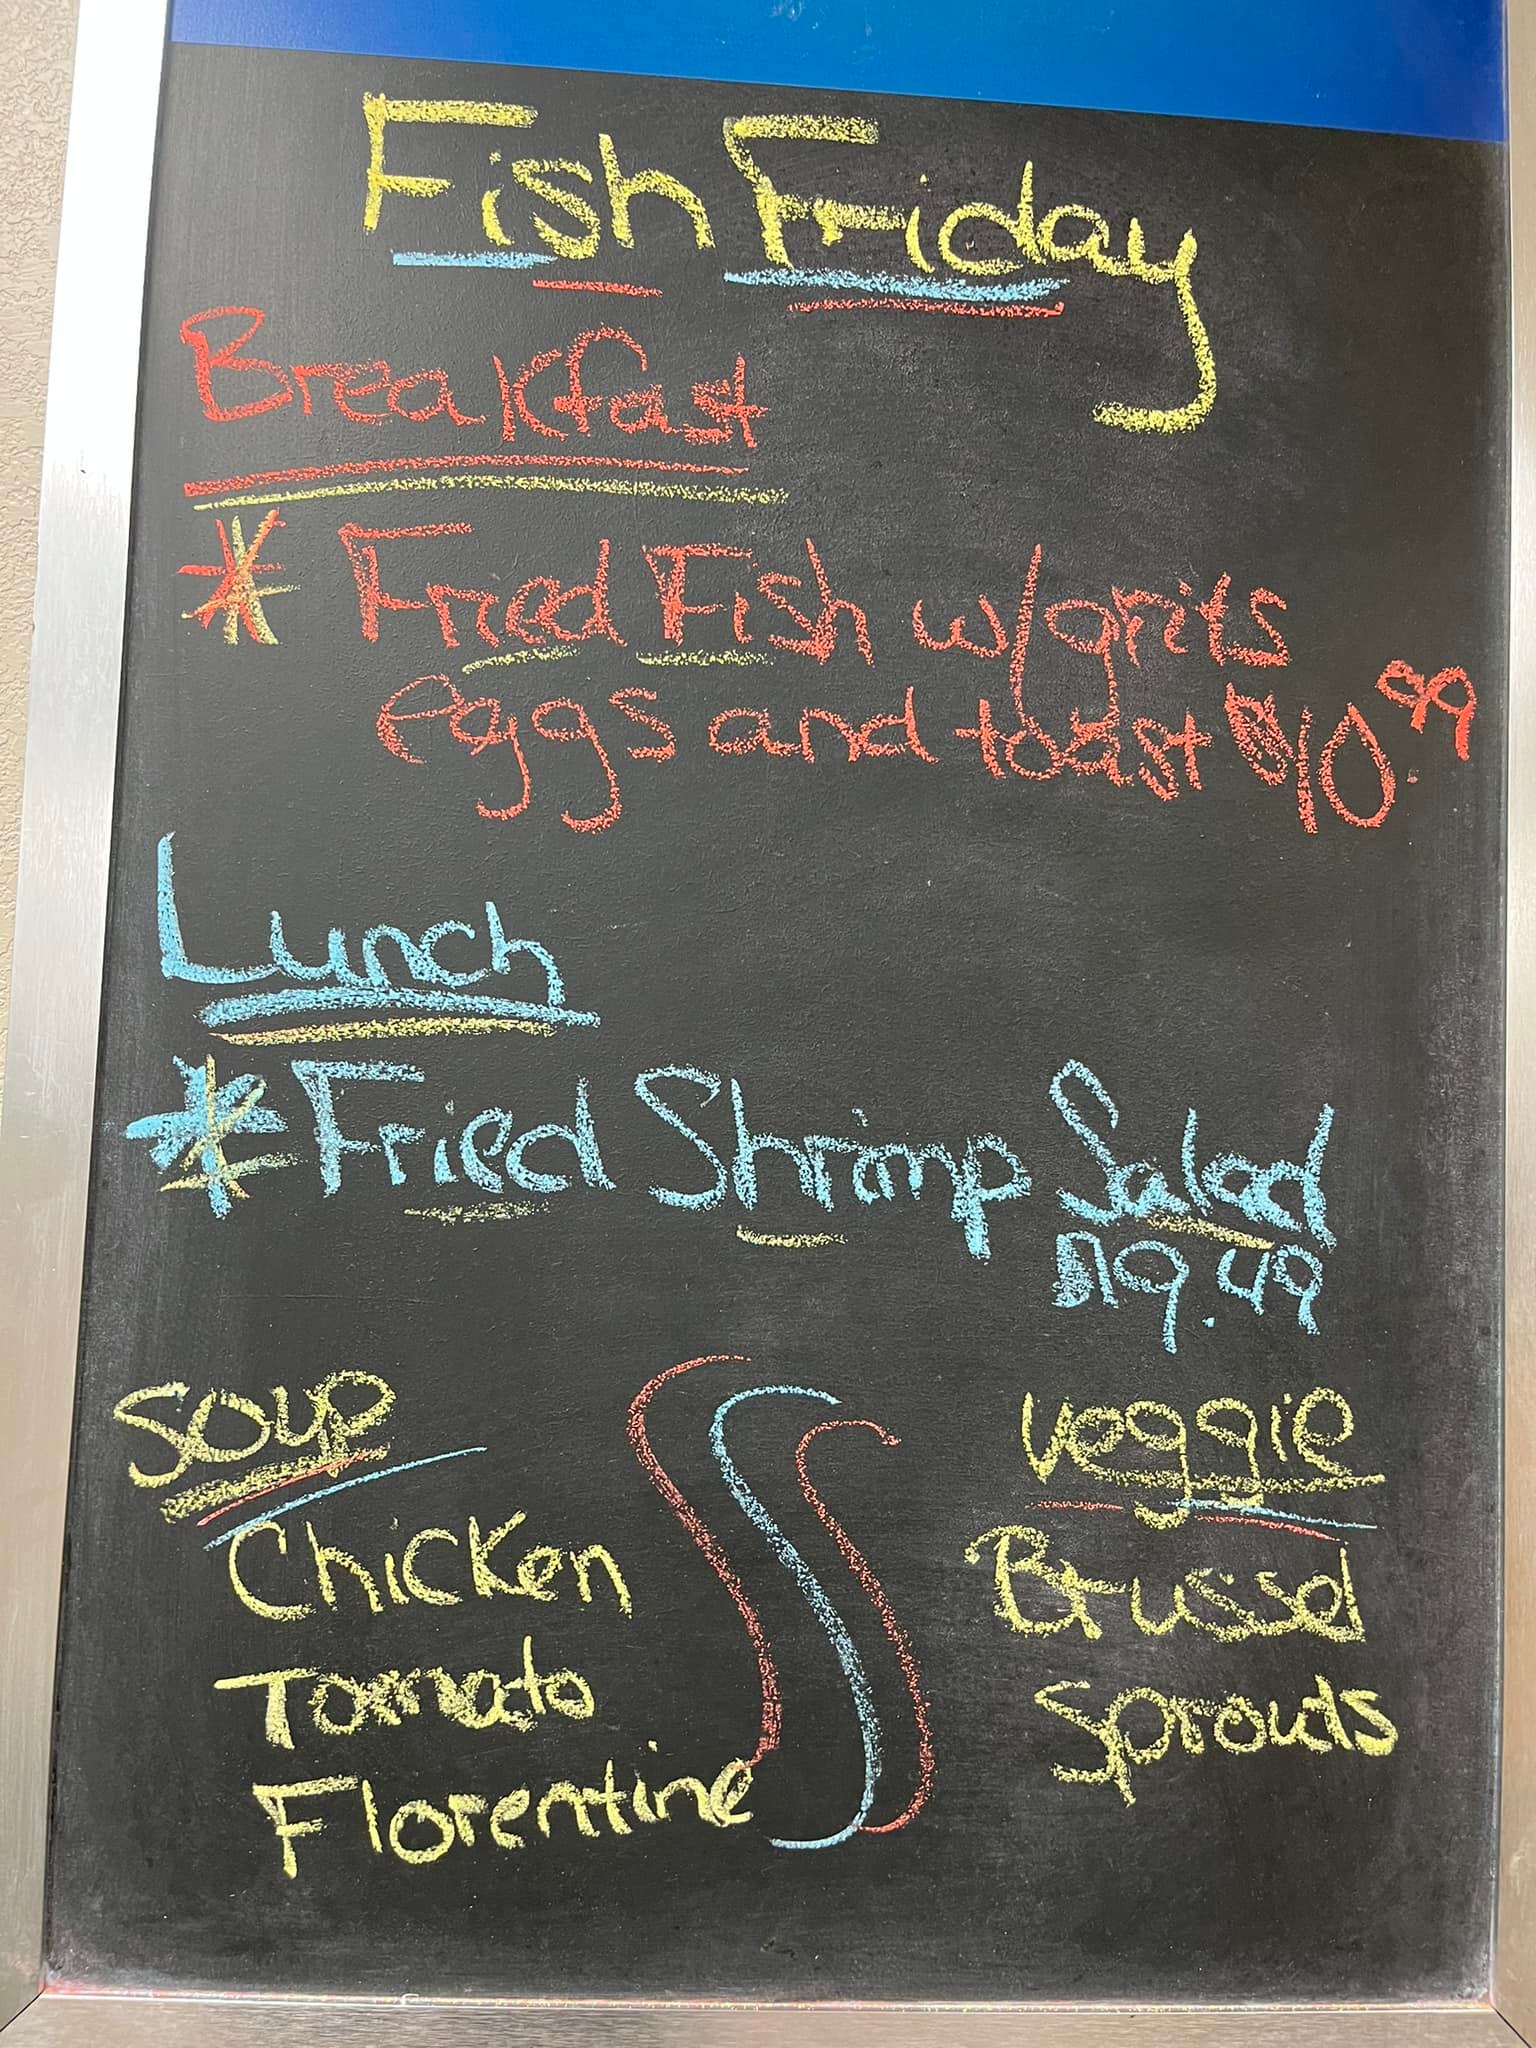 Fish Friday
Breakfast
* Fried Fish w/grits
eggs and toast $10.99
Lunch
* Fried Shrimp Salad
$19.49
Soup
Chicken
Tomato
Florentine
Veggie
Brussel
Sprouts